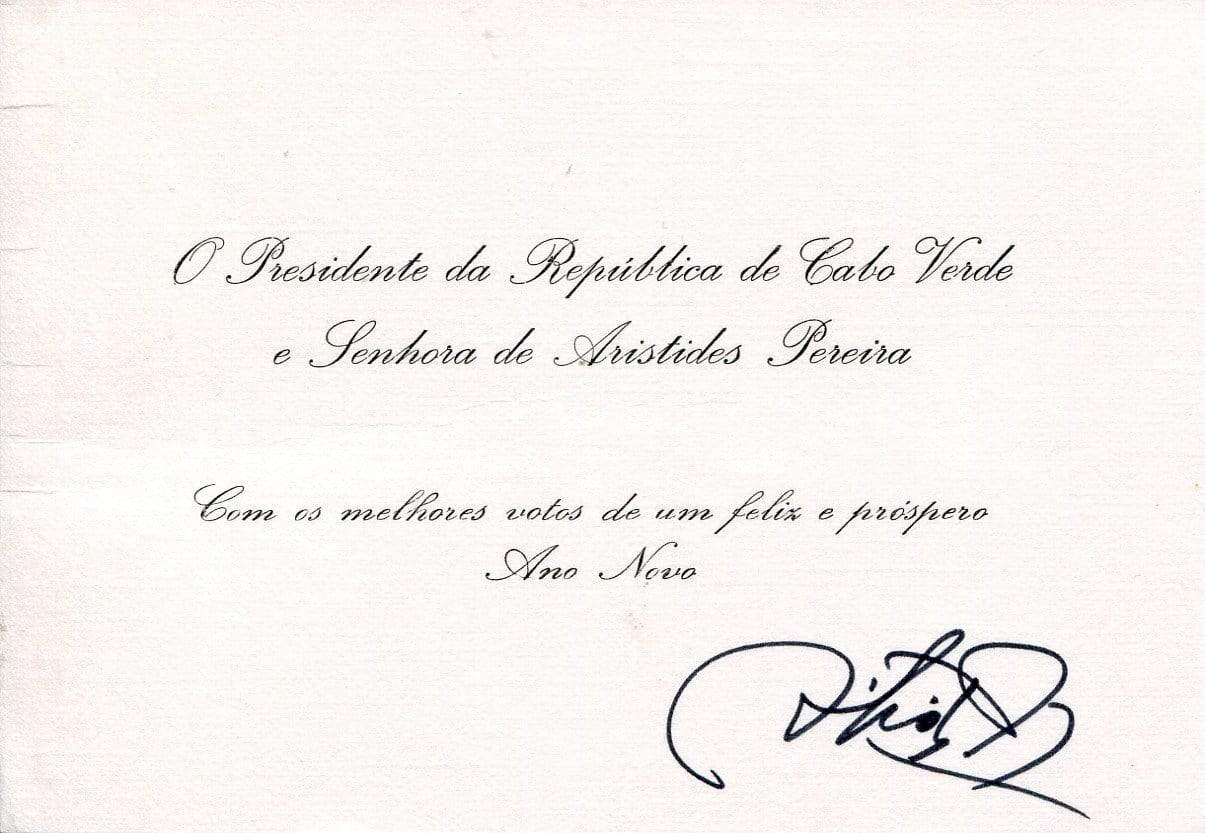 O Presidente da República de Cabo Verde
e Senhora de Aristides Pereira
Com os melhores votos de um feliz e próspero
Ano Novo